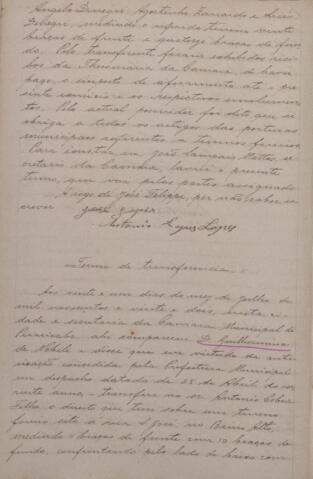 Angelo Denegri, Agostinho Zanardo e José
Felippe, medindo o referido terreno vinte
braças de frente e quatorze braças de fun-
do. Pelo transferente foram exhibidos reci-
bos da Thesouraria da Camara, de haver
pago o imposto de aforamento até o pre-
sente exercicio e os respectivos emolumen-
tos. Pelo actual possuidor foi dito que se
obriga a todos os artigos das posturas
municipaes referentes a terrenos foreiros.
Para constar, eu João Sampaio Mattos, se-
cretario da Camara, lavrei o presente
termo, que vae pelas partes assignado
A rogo de José Felippe, por não saber es-
crever
Antonio Lopes
Termo de transferencia
Aos vinte e um dias do mez de Julho de
mil novecentos e vinte e dois, nesta ci-
dade e secretaria da Camara Municipal de
Piracicaba, ahi compareceu D. Guilhermina
de Nobile e disse que em virtude da auto-
risação concedida pela Prefeitura Municipal
em despacho datado de 28 de Abril do cor-
rente anno, transfere ao sr. Antonio Cobra
Filho o direito que tem sobre um terreno
foreiro sito á rua S. José, no Bairro Alto,
medindo braças de frente com 10 braças de
fundo, confrontando pelo lado de baixo com